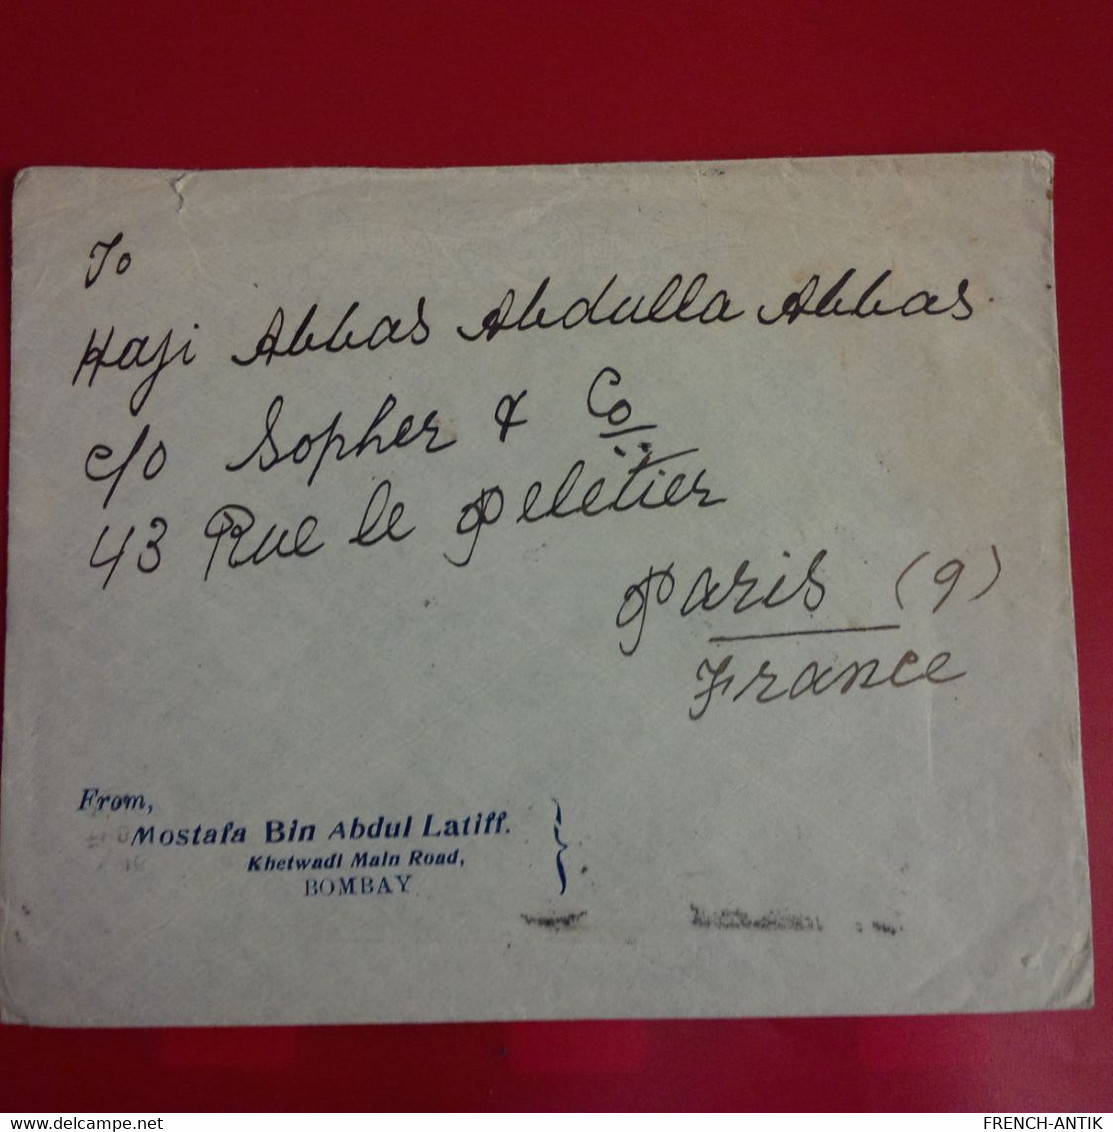 To
Haji Abbas Abdulla Abbas.
c/o Sopher & Co
43 Rue le Peletier
Paris (9)
France
From,
Mostafa Bin Abdul Latiff.
Khetwadi Main Road,
BOMBAY
delcampe.net
FRENCH-ANTIK